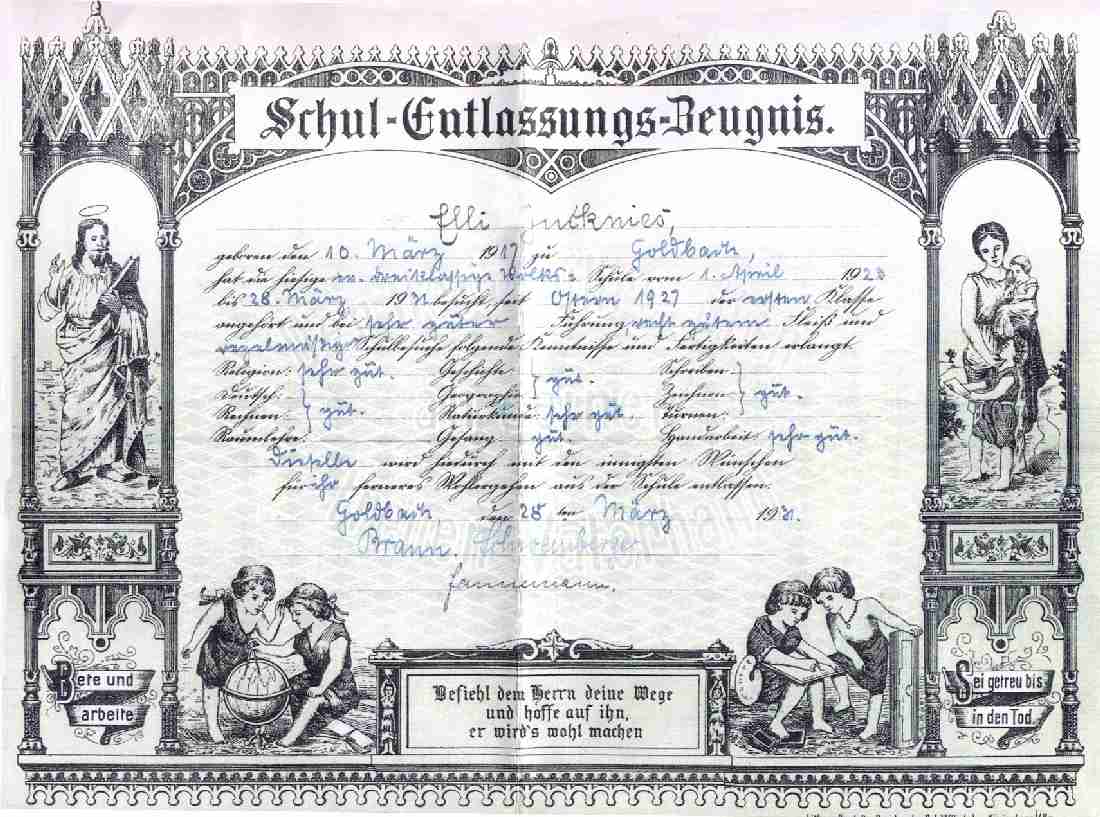 Schul-Entlassungs-Zeugnis.
Elli
geboren den 10. März 1917 zu Goldbach,
hat die hiesige ev. dreiklassige Volks-Schule vom 1. April 1923
bis 28. März 1931 besucht, seit Ostern 1927 der ersten Klasse
angehört und bei sehr guter Führung, recht gutem Fleiß und
regelmäßigem Schulbesuche folgende Kenntnisse und Fertigkeiten erlangt
Religion: sehr gut. Geschichte } gut. Schreiben
Deutsch: Geographie Zeichnen } gut.
Rechnen: } gut. Naturkunde sehr gut. Turnen:
Raumlehre: Gesang gut. Handarbeit sehr gut.
Dieselbe wird hiedurch mit den innigsten Wünschen
für ihr ferneres Wohlergehen aus der Schule entlassen.
Goldbach den 28 ten März 1931.
Braun. Scharfenberger
Hannemann.
Bete und
arbeite
Befiehl dem Herrn deine Wege
und hoffe auf ihn,
er wird's wohl machen
Sei getreu bis
in den Tod